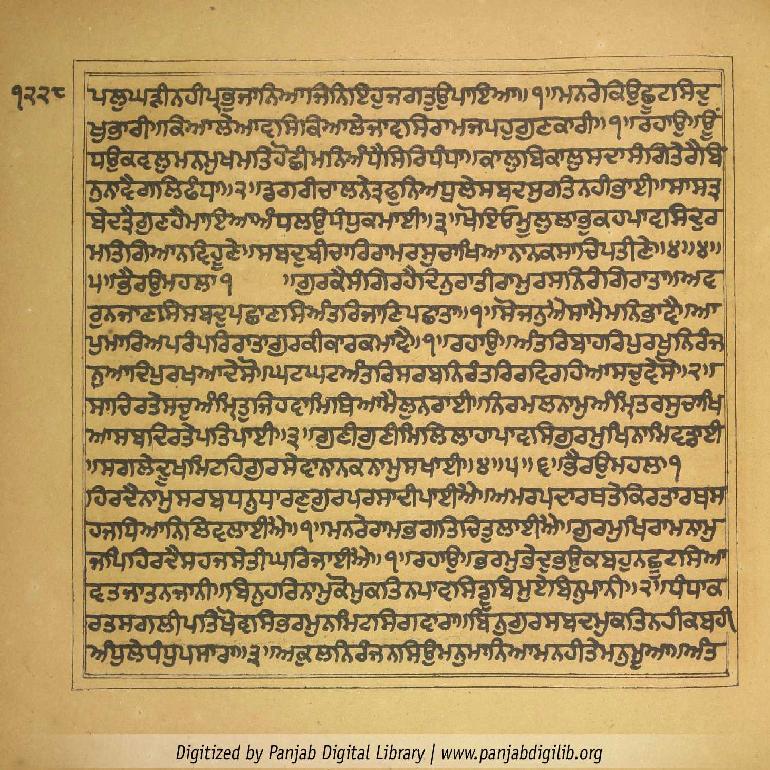 ੧੨੨੮
ਪਲੁਘੜੀਨਹੀਪ੍ਰਭੁਜਾਨਿਆਜਿਨਿਇਹੁਜਗਤੁਉਪਾਇਆ॥੧॥ਮਨਰੇਕਿਉਛੂਟਸਿਦੁ
ਖੁਭਾਰੀ॥ਕਿਆਲੇਆਵਸਿਕਿਆਲੇਜਾਵਸਿਰਾਮਜਪਹੁਗੁਣਕਾਰੀ॥੧॥ਰਹਾਉ॥ਊਂ
ਧਉਕਵਲੁਮਨਮੁਖਮਤਿਹੋਛੀਮਨਿਅੰਧੈਸਿਰਿਧੰਧਾ॥ਕਾਲੁਬਿਕਾਲੁਸਦਾਸਿਰਿਤੇਰੈਬਿ
ਨੁਨਾਵੈਗਲਿਫੰਧਾ॥੨॥ਡਗਰੀਚਾਲਨੇਤ੍ਰਫੁਨਿਅਧੁਲੇਸਬਦਸੁਰਤਿਨਹੀਭਾਈ॥ਸਾਸਤ੍ਰ
ਬੇਦਤ੍ਰੈਗੁਣਹੈਮਾਇਆਅੰਧਲਉਧੰਧੁਕਮਾਈ॥੩॥ਖੋਇਓਮੂਲੁਲਾਭੁਕਹਪਾਵਸਿਦੁਰ
ਮਤਿਗਿਆਨਵਿਹੂਣੇ॥ਸਬਦੁਬੀਚਾਰਿਰਾਮਰਸੁਚਾਖਿਆਨਾਨਕਸਾਚਿਪਤੀਣੇ॥੪॥੪॥
੫॥ਭੈਰਉਮਹਲਾ੧ ॥ਗੁਰਕੈਸੰਗਿਰਹੈਦਿਨੁਰਾਤੀਰਾਮੁਰਸਨਿਰੰਗਿਰਾਤਾ॥ਅਵ
ਰੁਨਜਾਣਸਿਸਬਦੁਪਛਾਣਸਿਅੰਤਰਿਜਾਣਿਪਛਾਤਾ॥੧॥ਸੋਜਨੁਐਸਾਮੈਮਨਿਭਾਵੈ॥ਆ
ਪੁਮਾਰਿਅਪਰੰਪਰਿਰਾਤਾਗੁਰਕੀਕਾਰਕਮਾਵੈ॥੧॥ਰਹਾਉ॥ਅੰਤਰਿਬਾਹਰਿਪੁਰਖੁਨਿਰੰਜ
ਨੁਆਦਿਪੁਰਖਆਦੇਸੋ॥ਘਟਘਟਅੰਤਰਿਸਰਬਨਿਰੰਤਰਿਰਵਿਰਹਿਆਸਚੁਵੇਸੋ॥੨॥
ਸਾਚਿਰਤੇਸਚੁਅੰਮ੍ਰਿਤੁਜਿਹਵਾਮਿਥਿਆਮੈਲੁਨਰਾਈ॥ਨਿਰਮਲਨਾਮੁਅੰਮ੍ਰਿਤਰਸੁਚਾਖਿ
ਆਸਬਦਿਰਤੇਪਤਿਪਾਈ॥੩॥ਗੁਣੀਗੁਣੀਮਿਲਿਲਾਹਾਪਾਵਸਿਗੁਰਮੁਖਿਨਾਮਿਵਡਾਈ
॥ਸਗਲੇਦੂਖਮਿਟਹਿਗੁਰਸੇਵਾਨਾਨਕਨਾਮੁਸਖਾਈ॥੪॥੫॥੬॥ਭੈਰਉਮਹਲਾ੧
ਹਿਰਦੈਨਾਮੁਸਰਬਧਨੁਧਾਰਣੁਗੁਰਪਰਸਾਦੀਪਾਈਐ॥ਅਮਰਪਦਾਰਥਤੇਕਿਰਤਾਰਥਸ
ਹਜਧਿਆਨਿਲਿਵਲਾਈਐ॥੧॥ਮਨਰੇਰਾਮਭਗਤਿਚਿਤੁਲਾਈਐ॥ਗੁਰਮੁਖਿਰਾਮਨਾਮੁ
ਜਪਿਹਿਰਦੈਸਹਜਸੇਤੀਘਰਿਜਾਈਐ॥੧॥ਰਹਾਉ॥ਭਰਮੁਭੇਦੁਭਉਕਬਹੁਨਛੂਟਸਿਆ
ਵਤਜਾਤਨਜਾਨੀ॥ਬਿਨੁਹਰਿਨਾਮੁਕੋਮੁਕਤਿਨਪਾਵਸਿਡੂਬਿਮੁਏਬਿਨੁਪਾਨੀ॥੨॥ਧੰਧਾਕ
ਰਤਸਗਲੀਪਤਿਖੋਵਸਿਭਰਮੁਨਮਿਟਸਿਗਵਾਰਾ॥ਬਿਨੁਗੁਰਸਬਦਮੁਕਤਿਨਹੀਕਬਹੀ
ਅੰਧੁਲੇਧੰਧੁਪਸਾਰਾ॥੩॥ਅਕੁਲਨਿਰੰਜਨਸਿਉਮਨੁਮਾਨਿਆਮਨਹੀਤੇਮਨੁਮੂਆ॥ਅੰਤ
Digitized by Panjab Digital Library | www.panjabdigilib.org